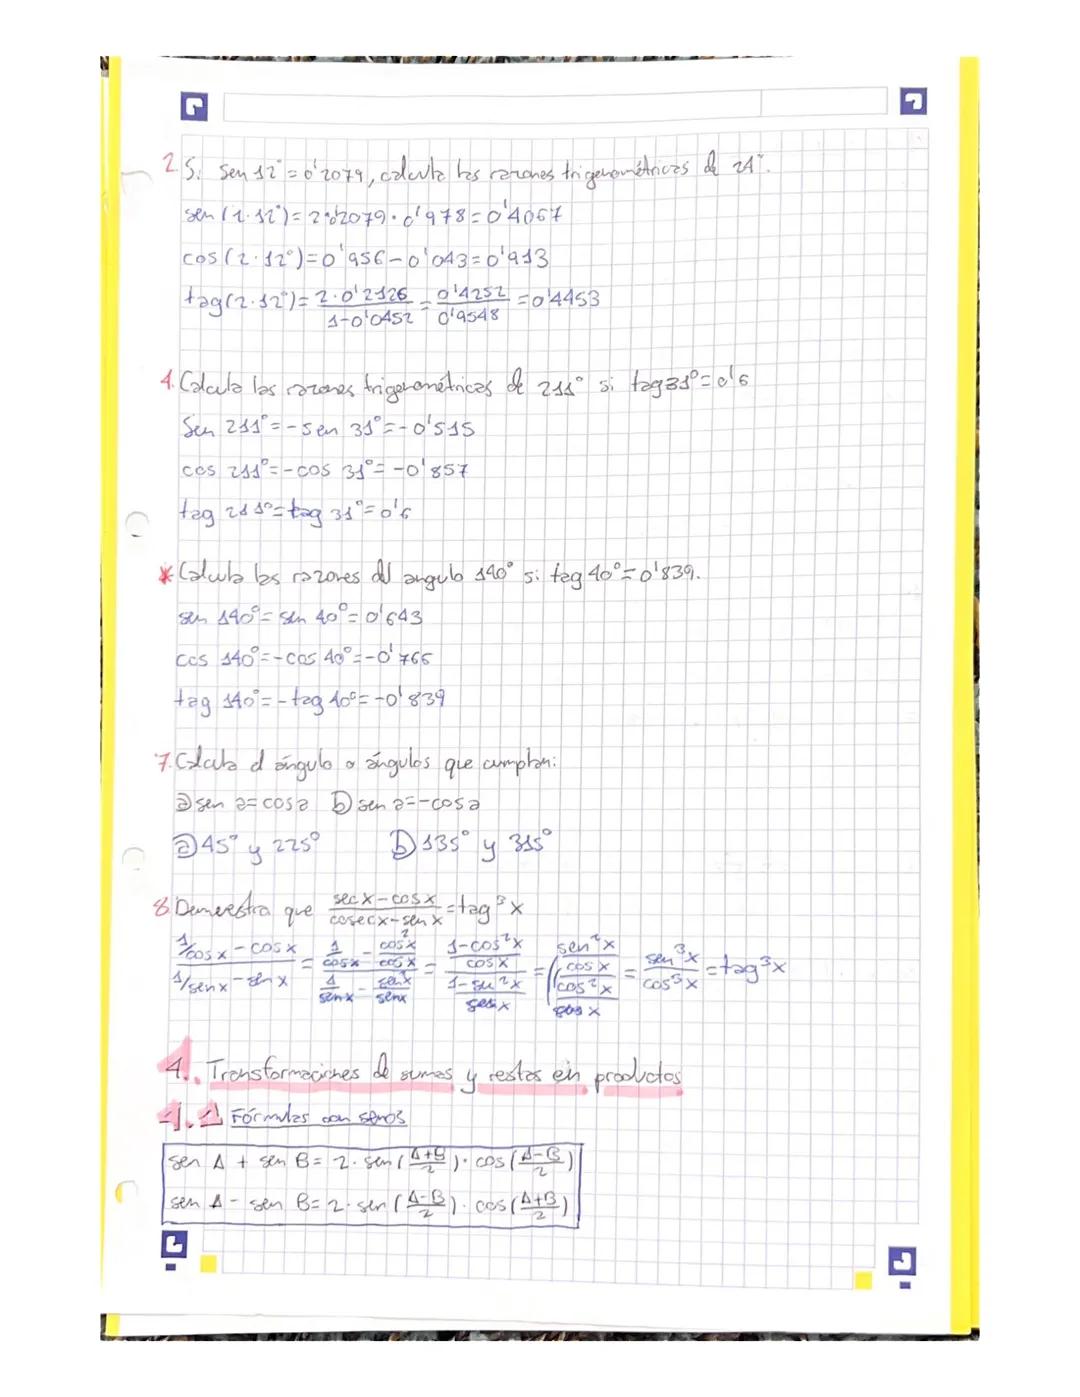 2. Si sen 12° = 0'2079, calcula las razones trigonométricas de 24°.
sen (2·12°) = 2·0'2079·0'978 = 0'4067
cos (2·12°) = 0'956 - 0'043 = 0'913
tag (2·12°) = 2·0'2126/1-0'0452 = 0'4252/0'9548 = 0'4453
4. Calcula las razones trigonométricas de 211° si tag 31° = 0'6
Sen 211° = -sen 31° = -0'515
cos 211° = -cos 31° = -0'857
tag 211° = tag 31° = 0'6
* Calcula las razones del angulo 140° si tag 40° = 0'839.
sen 140° = sen 40° = 0'643
cos 140° = -cos 40° = -0'766
tag 140° = -tag 40° = -0'839
7. Calcula el ángulo o ángulos que cumplan:
a) sen a = cos a b) sen a = -cos a
a) 45° y 225° b) 135° y 315°
8. Demuestra que (sec x - cos x)/(cosec x - sen x) = tag³x
(1/cos x - cos x)/(1/sen x - sen x) = (1/cos x - cos²x/cos x)/(1/sen x - sen²x/sen x) = ((1-cos²x)/cos x)/((1-sen²x)/sen x) = (sen²x/cos x)/(cos²x/sen x) = sen³x/cos³x = tag³x
4. Transformaciones de sumas y restas en productos
4.1 Fórmulas con senos
sen A + sen B = 2·sen (A+B/2)·cos (A-B/2)
sen A - sen B = 2·sen (A-B/2)·cos (A+B/2)